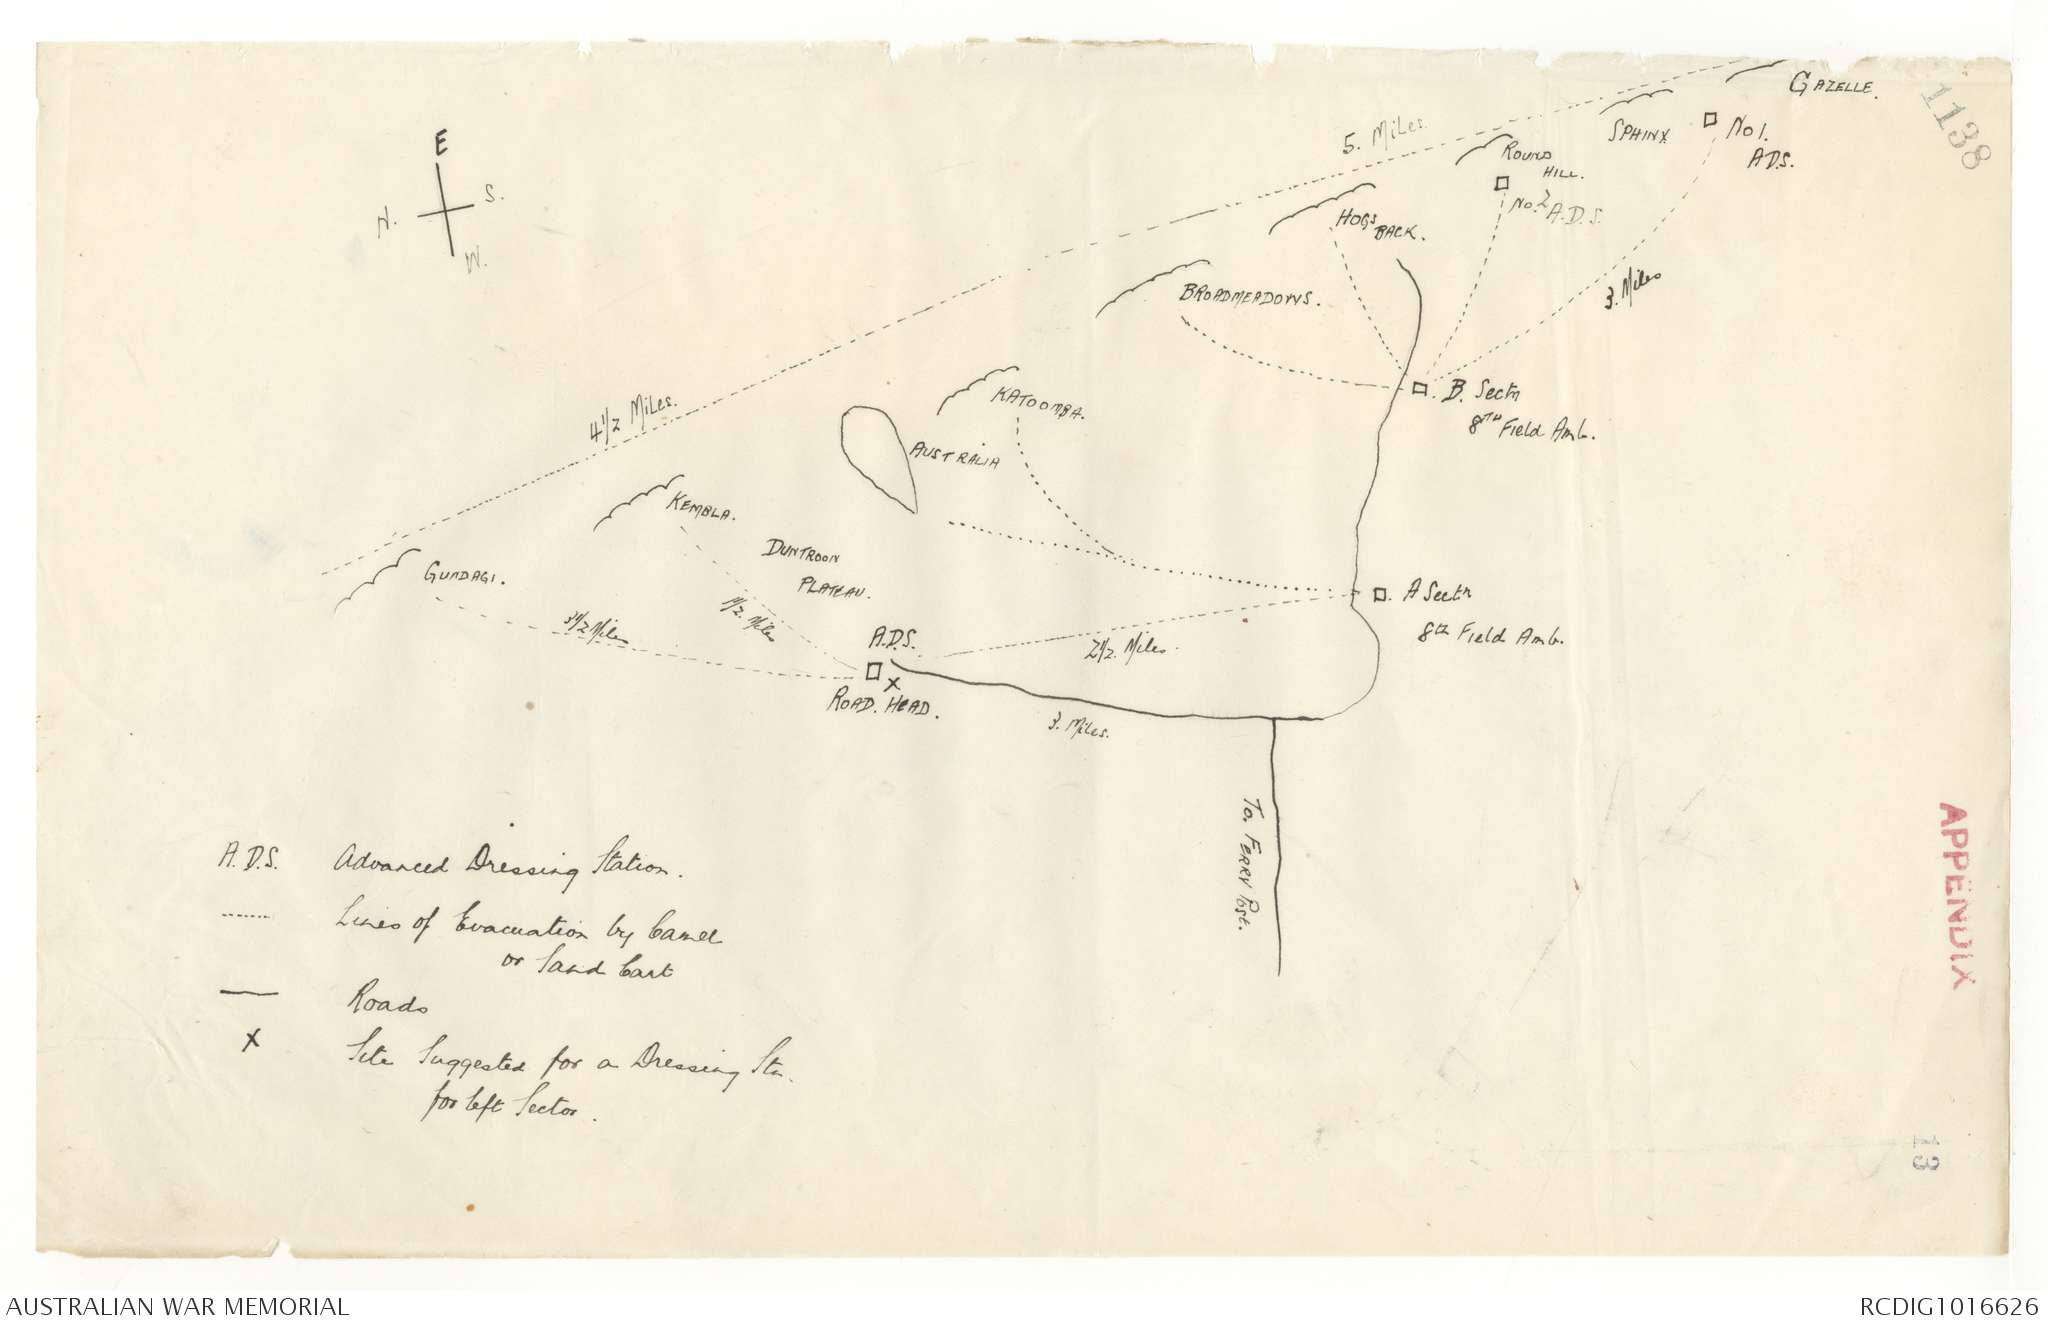 1138
GAZELLE.
SPHINX
No 1.
A.D.S.
5. Miles.
ROUND
HILL.
No. 2 A.D.S.
E
N. S.
W.
HOGS
BACK.
3. Miles
BROADMEADOWS.
B. Sectn
8TH Field Amb.
KATOOMBA.
4 1/2 Miles.
AUSTRALIA
KEMBLA.
DUNTROON
PLATEAU.
GUNDAGI.
1 1/2. Miles
3 1/2 Miles
A.D.S.
2 1/2. Miles.
A Sectn
8th Field Amb.
x
ROAD. HEAD.
3. Miles.
To. FERRY Post.
APPENDIX
A.D.S. Advanced Dressing Station.
Lines of Evacuation by Camel
or Sand Cart
Roads
x Site Suggested for a Dressing Stn.
for left Sector.
13
AUSTRALIAN WAR MEMORIAL
RCDIG1016626